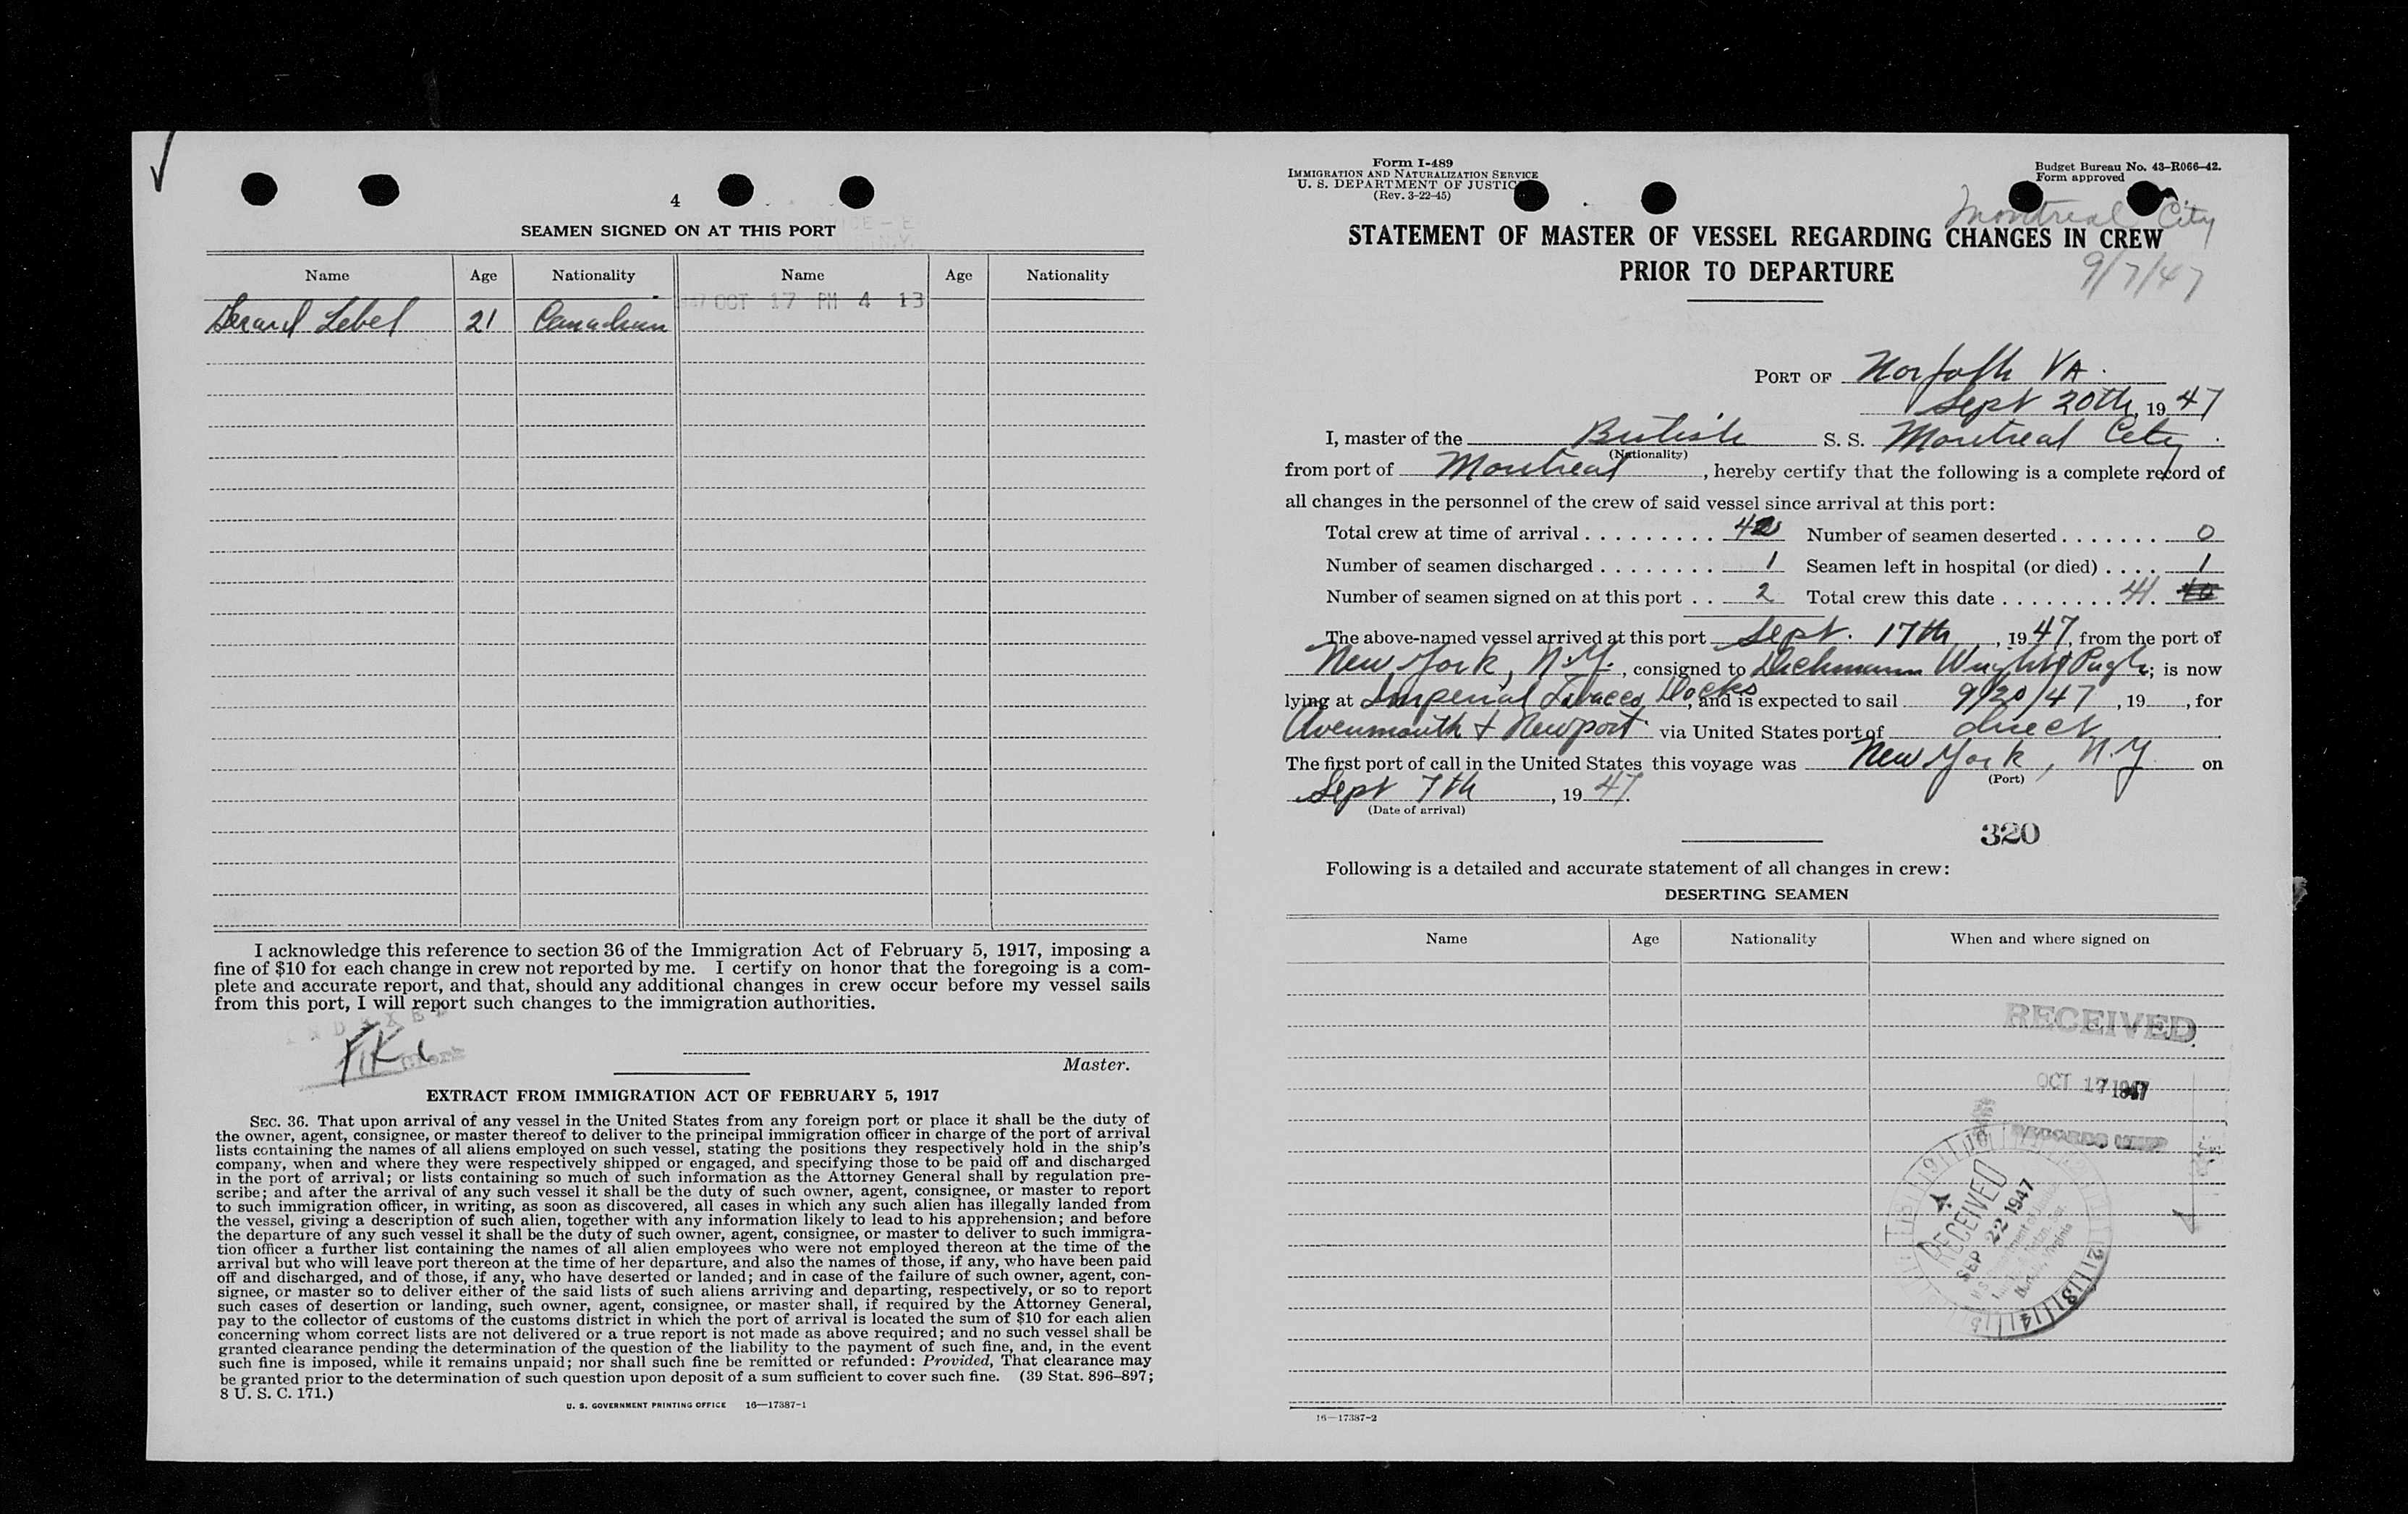 4
SEAMEN SIGNED ON AT THIS PORT
Name Age Nationality Name Age Nationality
OCT 17 PM 4 13
Gerard Lebel 21 Canadian
I acknowledge this reference to section 36 of the Immigration Act of February 5, 1917, imposing a
fine of $10 for each change in crew not reported by me. I certify on honor that the foregoing is a com-
plete and accurate report, and that, should any additional changes in crew occur before my vessel sails
from this port, I will report such changes to the immigration authorities.
INDEXED
Clerk
Master.
EXTRACT FROM IMMIGRATION ACT OF FEBRUARY 5, 1917
SEC. 36. That upon arrival of any vessel in the United States from any foreign port or place it shall be the duty of
the owner, agent, consignee, or master thereof to deliver to the principal immigration officer in charge of the port of arrival
lists containing the names of all aliens employed on such vessel, stating the positions they respectively hold in the ship's
company, when and where they were respectively shipped or engaged, and specifying those to be paid off and discharged
in the port of arrival; or lists containing so much of such information as the Attorney General shall by regulation pre-
scribe; and after the arrival of any such vessel it shall be the duty of such owner, agent, consignee, or master to report
to such immigration officer, in writing, as soon as discovered, all cases in which any such alien has illegally landed from
the vessel, giving a description of such alien, together with any information likely to lead to his apprehension; and before
the departure of any such vessel it shall be the duty of such owner, agent, consignee, or master to deliver to such immigra-
tion officer a further list containing the names of all alien employees who were not employed thereon at the time of the
arrival but who will leave port thereon at the time of her departure, and also the names of those, if any, who have been paid
off and discharged, and of those, if any, who have deserted or landed; and in case of the failure of such owner, agent, con-
signee, or master so to deliver either of the said lists of such aliens arriving and departing, respectively, or so to report
such cases of desertion or landing, such owner, agent, consignee, or master shall, if required by the Attorney General,
pay to the collector of customs of the customs district in which the port of arrival is located the sum of $10 for each alien
concerning whom correct lists are not delivered or a true report is not made as above required; and no such vessel shall be
granted clearance pending the determination of the question of the liability to the payment of such fine, and, in the event
such fine is imposed, while it remains unpaid; nor shall such fine be remitted or refunded: Provided, That clearance may
be granted prior to the determination of such question upon deposit of a sum sufficient to cover such fine. (39 Stat. 896–897;
8 U. S. C. 171.)
U. S. GOVERNMENT PRINTING OFFICE 16—17387-1
Form I-489
IMMIGRATION AND NATURALIZATION SERVICE
U. S. DEPARTMENT OF JUSTICE
(Rev. 3-22-45)
Budget Bureau No. 43-R066-42.
Form approved
Montreal City
STATEMENT OF MASTER OF VESSEL REGARDING CHANGES IN CREW
PRIOR TO DEPARTURE
9/7/47
PORT OF Norfolk VA.
Sept 20th, 19 47
I, master of the British S. S. Montreal City
(Nationality)
from port of Montreal, hereby certify that the following is a complete record of
all changes in the personnel of the crew of said vessel since arrival at this port:
Total crew at time of arrival Number of seamen deserted 0
Number of seamen discharged 1 Seamen left in hospital (or died) 1
Number of seamen signed on at this port 2 Total crew this date 41
The above-named vessel arrived at this port Sept. 17th, 19 47, from the port of
New York, N.Y., consigned to Dichmann Wright & Pugh; is now
lying at Imperial Tobacco Docks, and is expected to sail 9/20/47, 19 , for
Avonmouth & Newport via United States port of direct
The first port of call in the United States this voyage was New York, N.Y on
(Port)
Sept 7th, 19 47.
(Date of arrival)
320
Following is a detailed and accurate statement of all changes in crew:
DESERTING SEAMEN
Name Age Nationality When and where signed on
RECEIVED
OCT 17 1947
RECORDS
RECEIVED
SEP 22 1947
16—17387-2